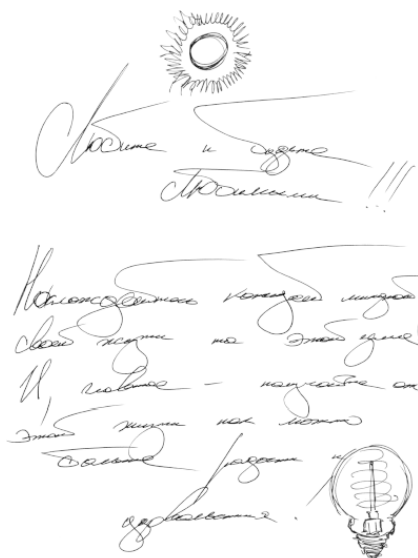 Любите и будьте
Любимыми !!!
Наслаждайтесь каждой минутой
своей жизни на этой
И главное – получайте от
этой жизни как можно
больше радости и
удовольствия!